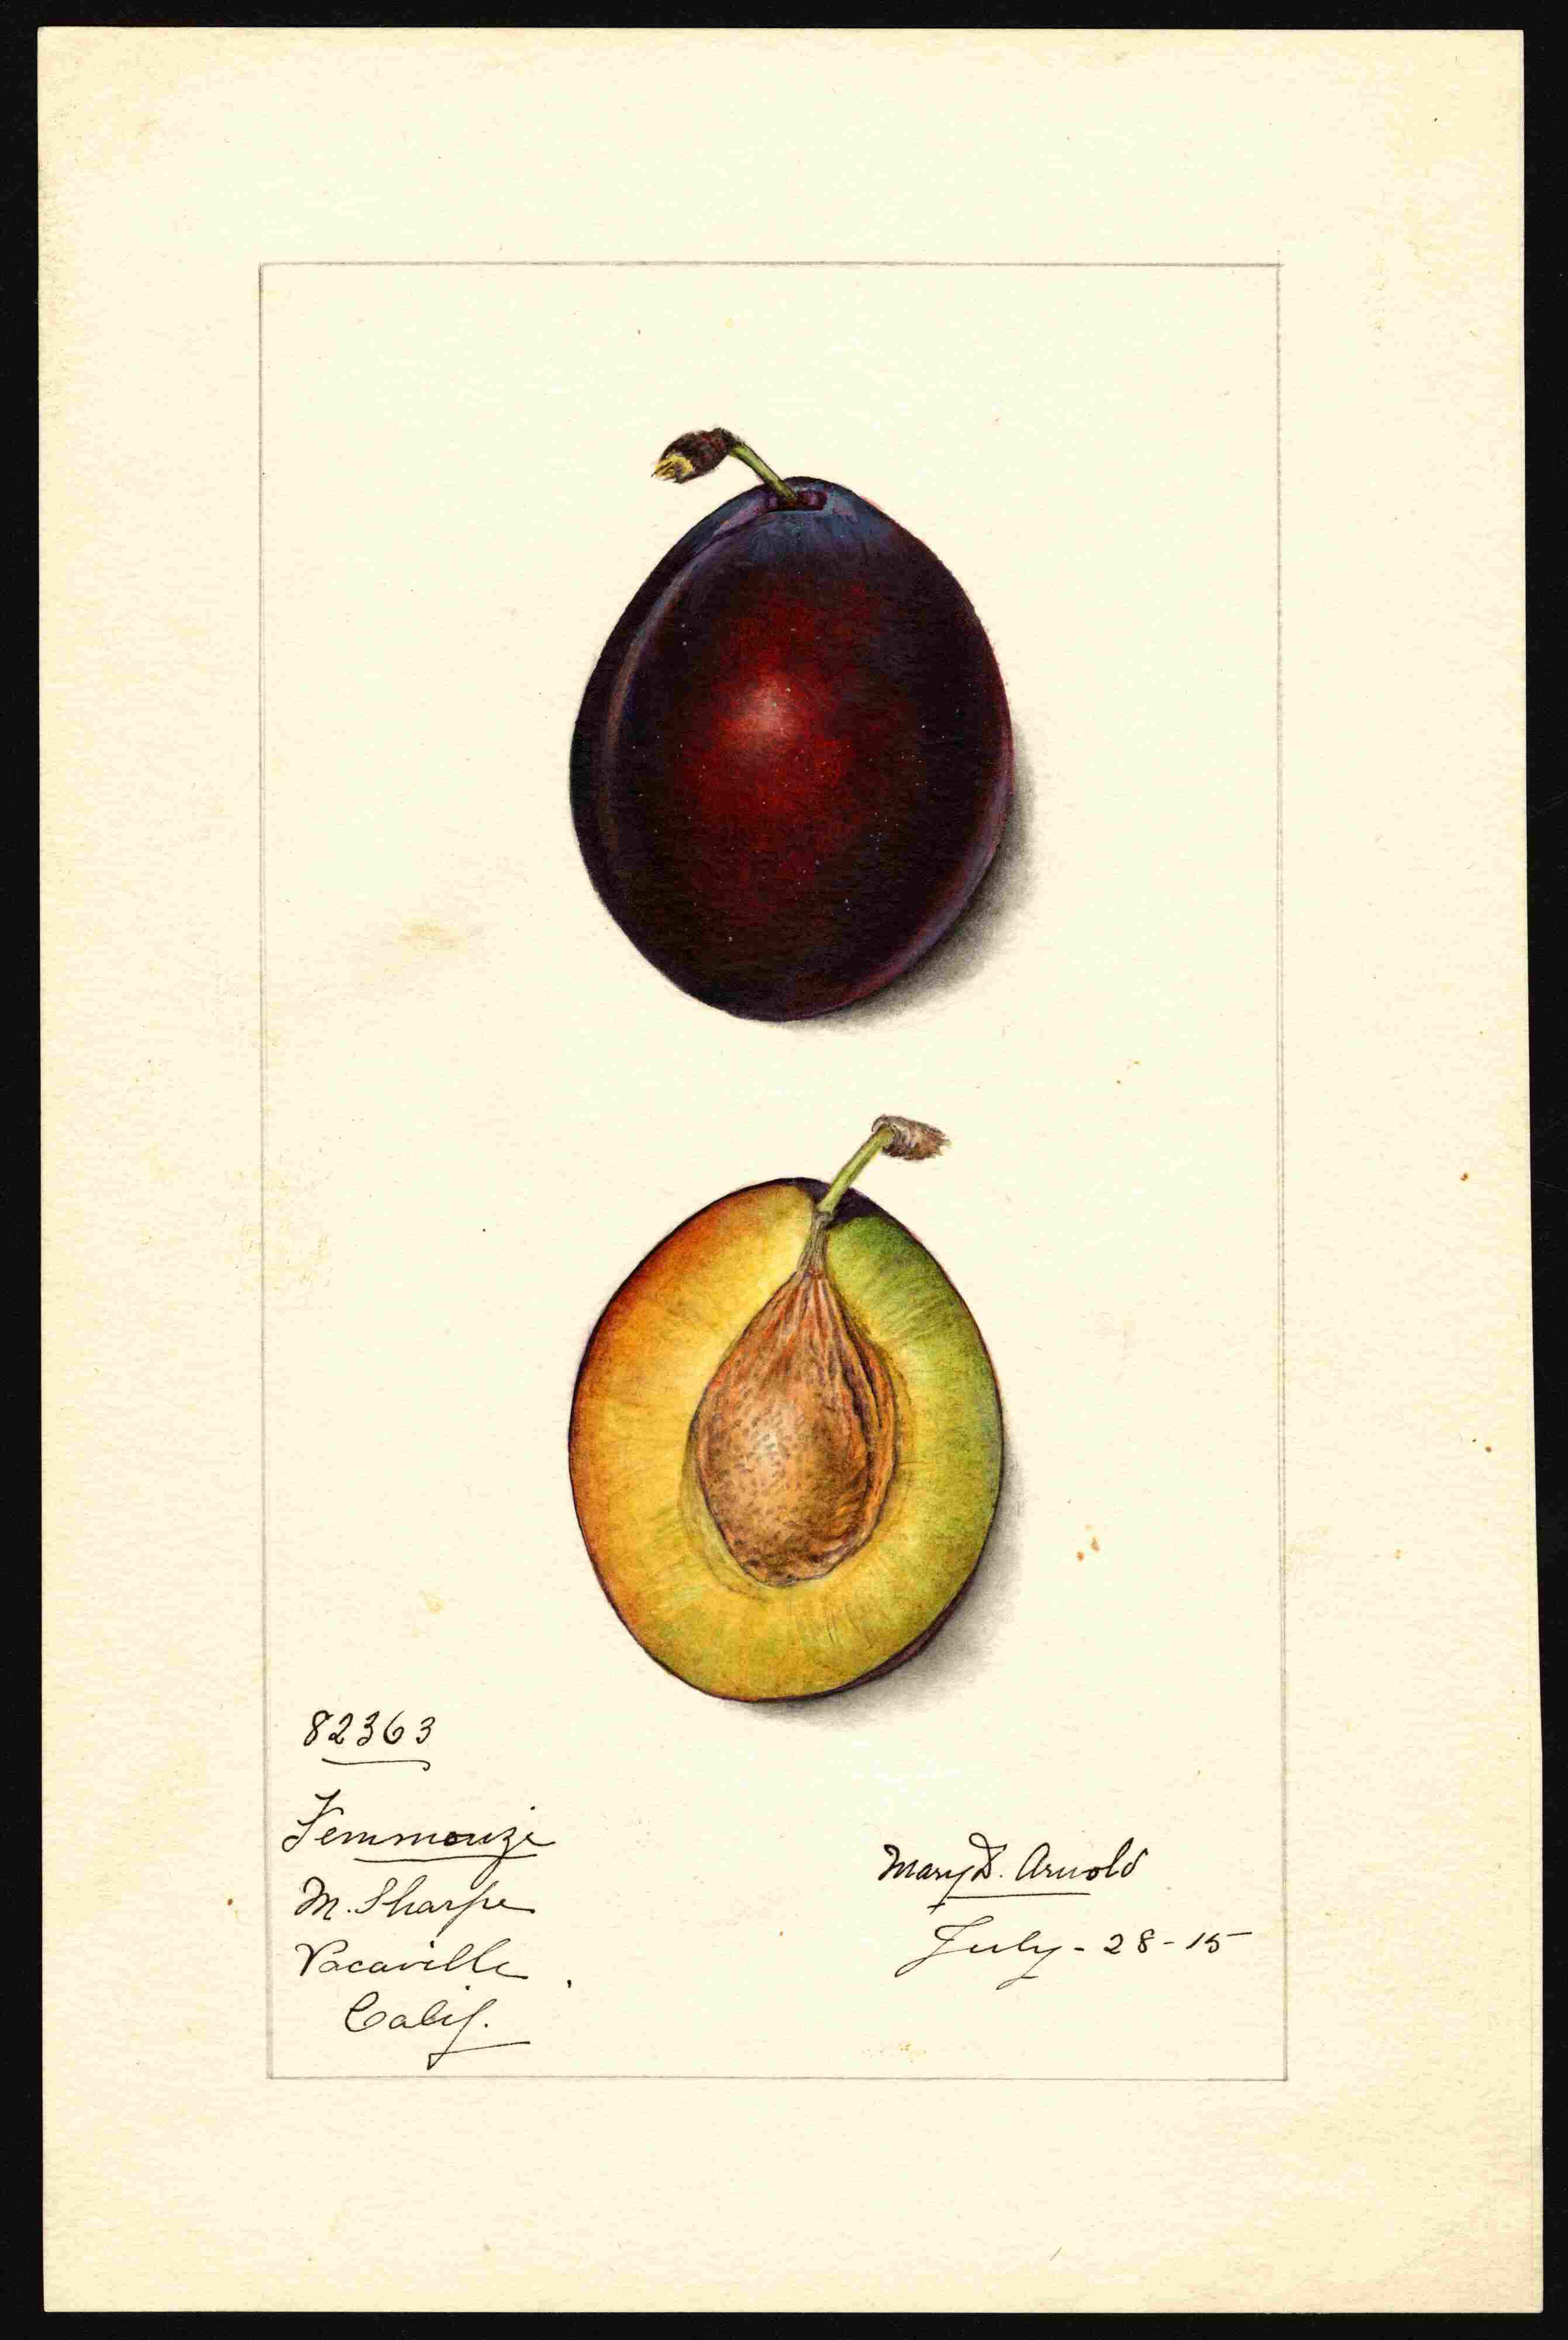 82363
Femmouzi
M. Sharpe
Vacaville
Calif.
Mary D. Arnold
July - 28 - 15